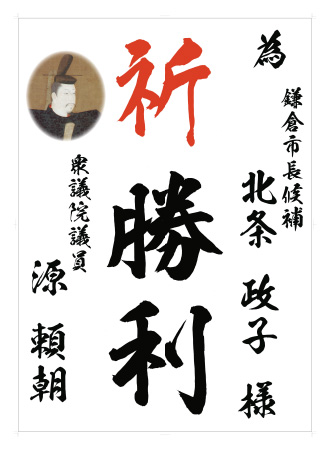 為
鎌倉市長候補
北条 政子 様
祈勝利
衆議院議員
源 頼朝